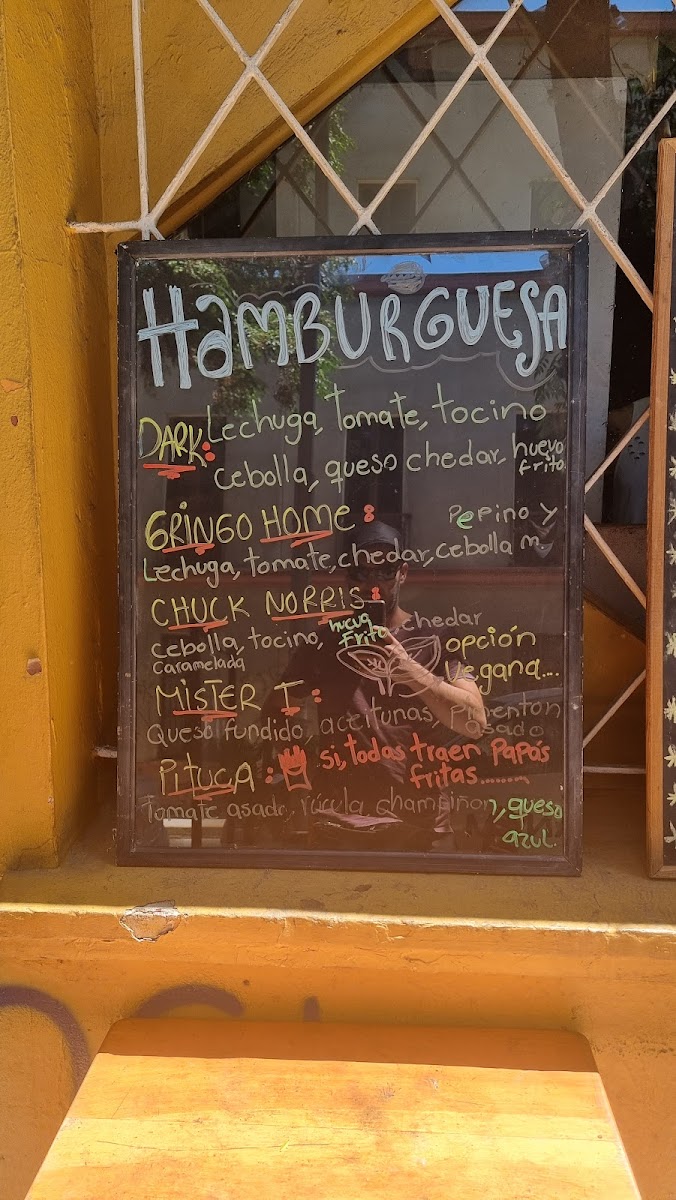 HamBURGUESA
DARK: Lechuga, Tomate, tocino
cebolla, queso chedar, huevo frito
GRINGO HOME:
Pepino y
Lechuga, tomate, chedar, cebolla m
CHUCK NORRIS:
cebolla, tocino, huevo frito, chedar
caramelada
opción
vegana...
MISTER T:
Queso fundido, aceitunas, Pimenton
asado
PITUCA: si, todas traen Papas
fritas........
Tomate asado, rúcula, champiñon, queso
azul.